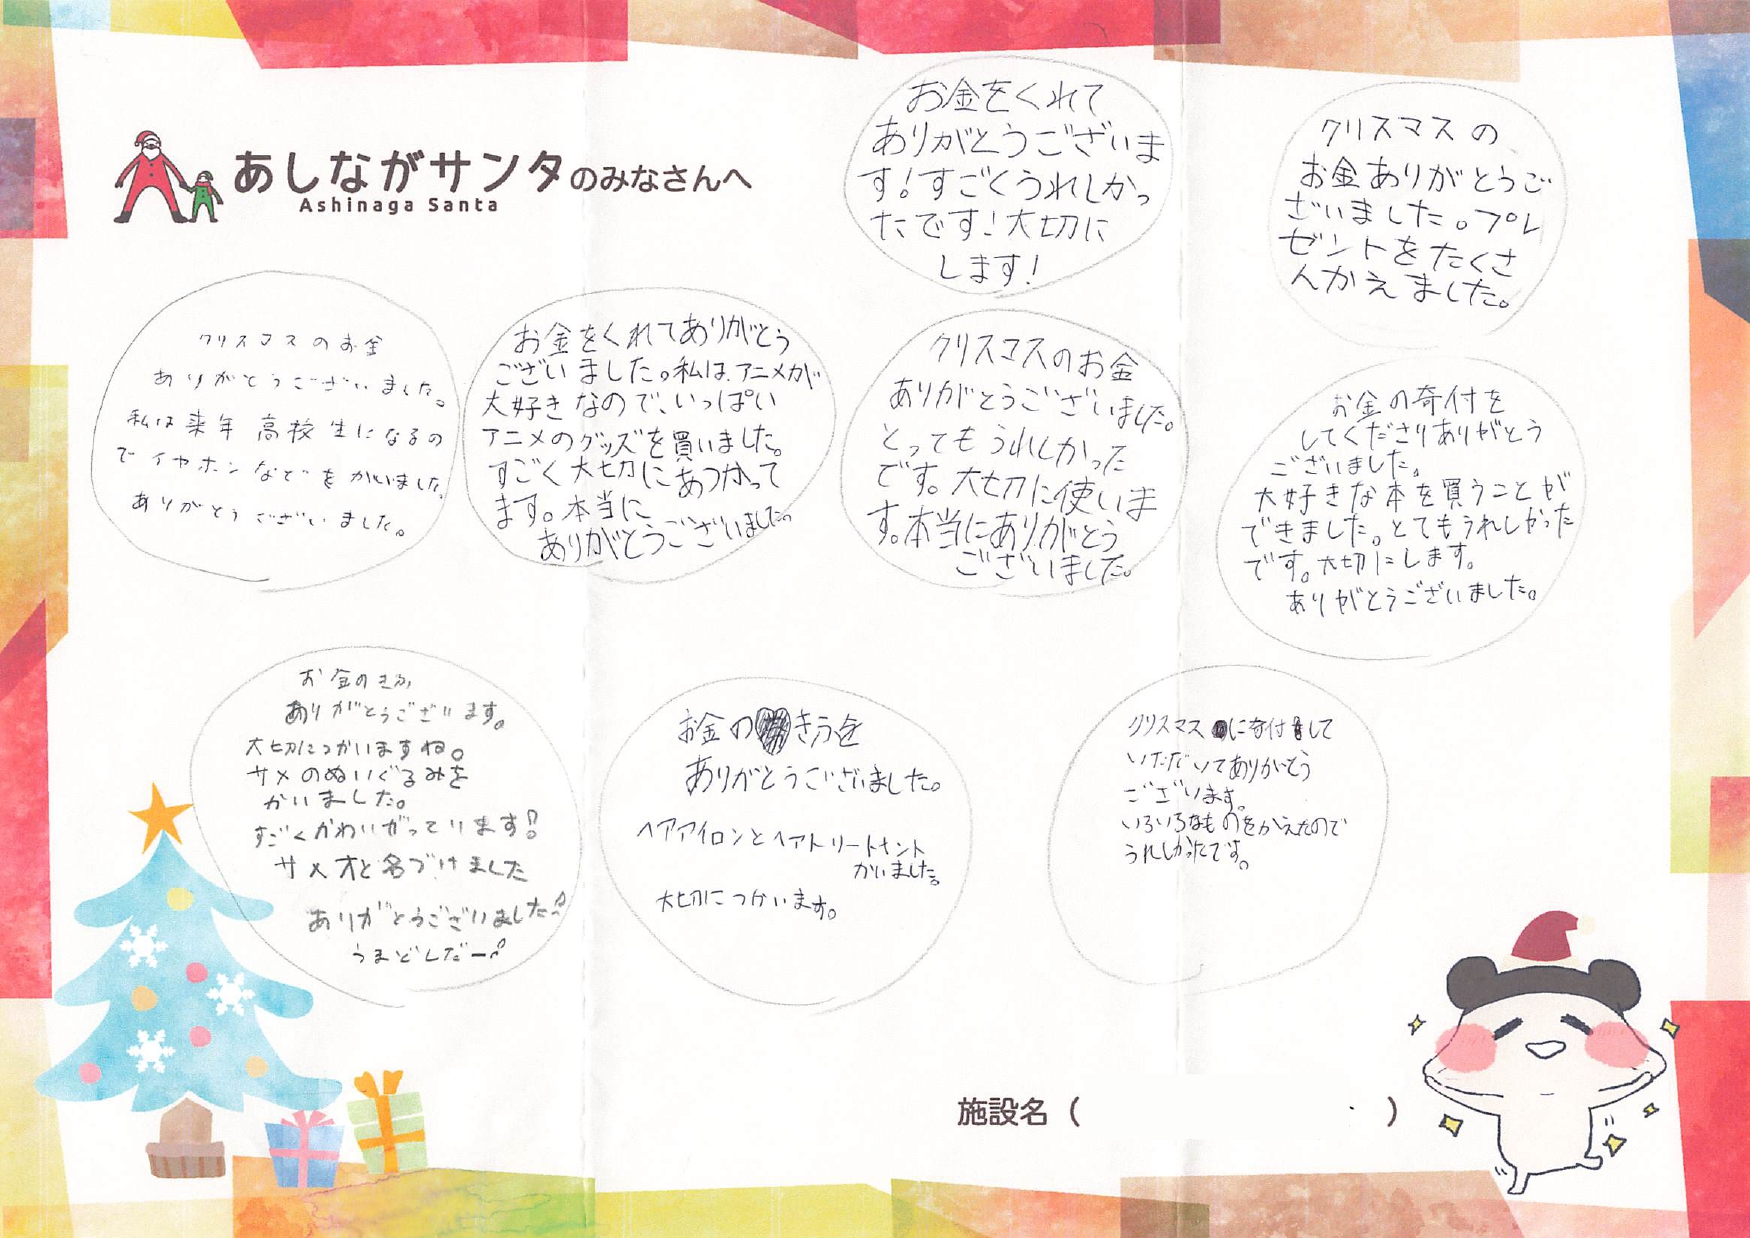 あしながサンタのみなさんへ
Ashinaga Santa
お金をくれて
ありがとうございま
す!すごくうれしかっ
たです!大切に
します!
クリスマスの
お金ありがとうご
ざいました。プレ
ゼントをたくさ
んかえました。
クリスマスのお金
ありがとうございました。
私は来年高校生になるの
でイヤホンなどをかいました。
ありがとうございました。
お金をくれてありがとう
ございました。私は、アニメが
大好きなので、いっぱい
アニメのグッズを買いました。
すごく大切にあつかって
ます。本当に
ありがとうございました。
クリスマスのお金
ありがとうございました。
とってもうれしかった
です。大切に使いま
す。本当にありがとう
ございました。
お金の寄付を
してくださりありがとう
ございました。
大好きな本を買うことが
できました。とてもうれしかった
です。大切にします。
ありがとうございました。
お金のきふ
ありがとうございます。
大切につかいますね。
サメのぬいぐるみを
かいました。
すごくかわいがっています!
サメオと名づけました
ありがとうございました!
うまどしだー!
お金のきふを
ありがとうございました。
ヘアアイロンとヘアトリートメント
かいました。
大切につかいます。
クリスマスに寄付して
いただいてありがとう
ございます。
いろいろなものをかえたので
うれしかったです。
施設名 ( )